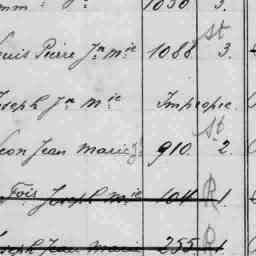 1030 3.
St
Louis Pierre Jn Mie 1088 3.
Joseph Jn Mie Impropre.
St
Léon Jean Marie 910. 2.
Fois Joseph Mie 101 R 1.
Joseph Jean Marie 255 R 1